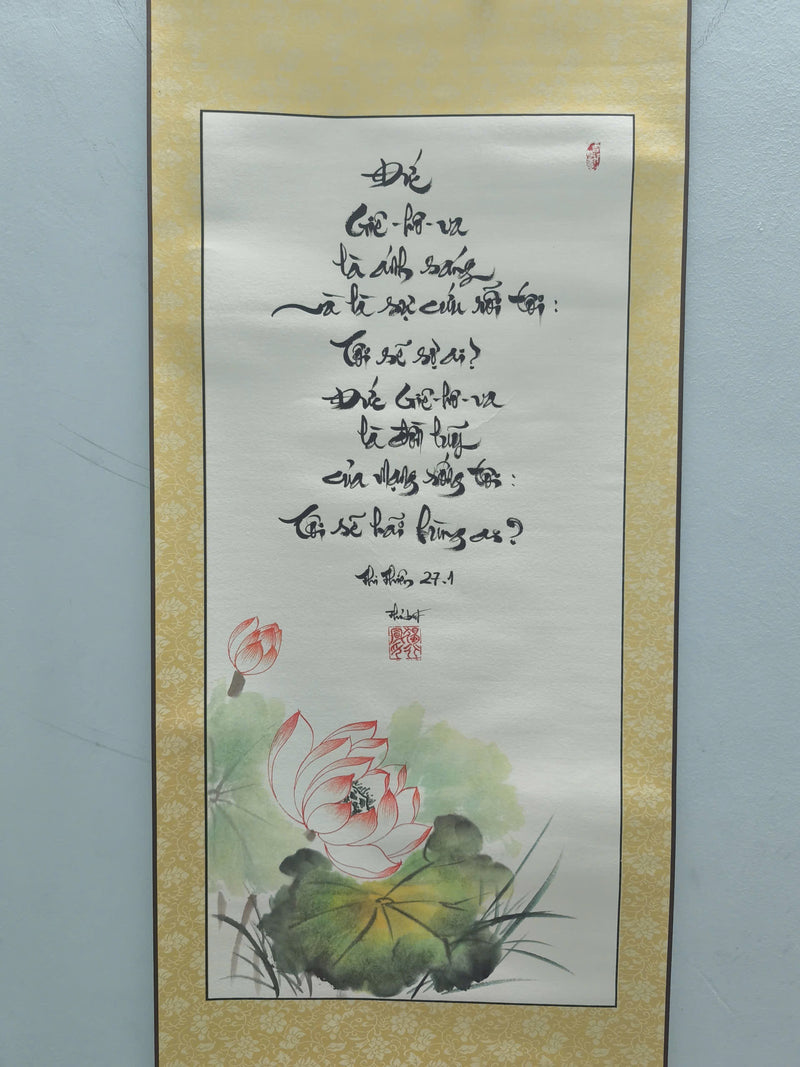 Đức
Giê-hô-va
là ánh sáng
và là sự cứu rỗi tôi:
Tôi sẽ sợ ai?
Đức Giê-hô-va
là đồn lũy
của mạng sống tôi:
Tôi sẽ hãi hùng ai?
Thi Thiên 27.1